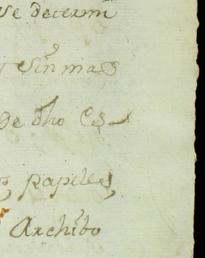 se determi
y sin mas
de dho Es
papeles,
Archibo